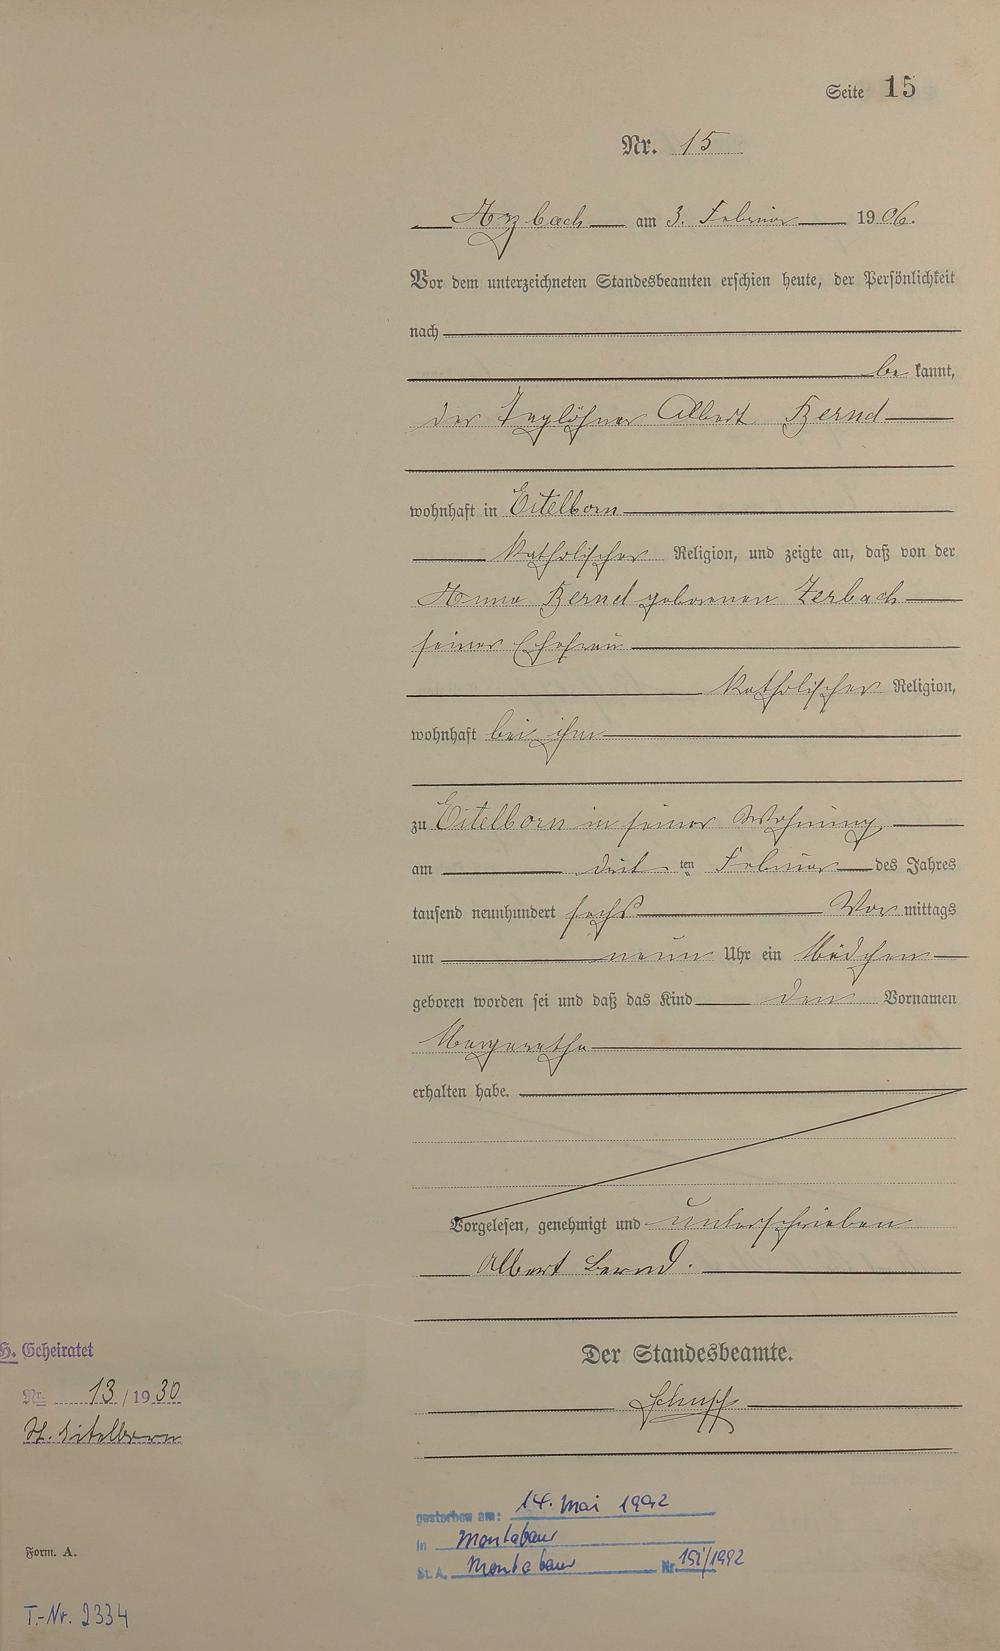 Seite 15
Nr. 15
Arzbach am 3. Februar 1906.
Vor dem unterzeichneten Standesbeamten erschien heute, der Persönlichkeit
nach
be kannt,
der Taglöhner Albert Bernd
wohnhaft in Eitelborn
katholischer Religion, und zeigte an, daß von der
Anna Bernd geborenen Zerbach
seiner Ehefrau
katholischer Religion,
wohnhaft bei ihm
zu Eitelborn in seiner Wohnung
am drit ten Februar des Jahres
tausend neunhundert sechs Vor mittags
um neun Uhr ein Mädchen
geboren worden sei und daß das Kind den Vornamen
Margaretha
erhalten habe.
Vorgelesen, genehmigt und unterschrieben
Albert Bernd.
Der Standesbeamte.
H. Geheiratet
Nr. 13/1930
St. Eitelborn
gestorben am: 14. Mai 1992
in Montabaur
St. A. Montabaur Nr. 151/1992
Form. A.
T.-Nr. 2334